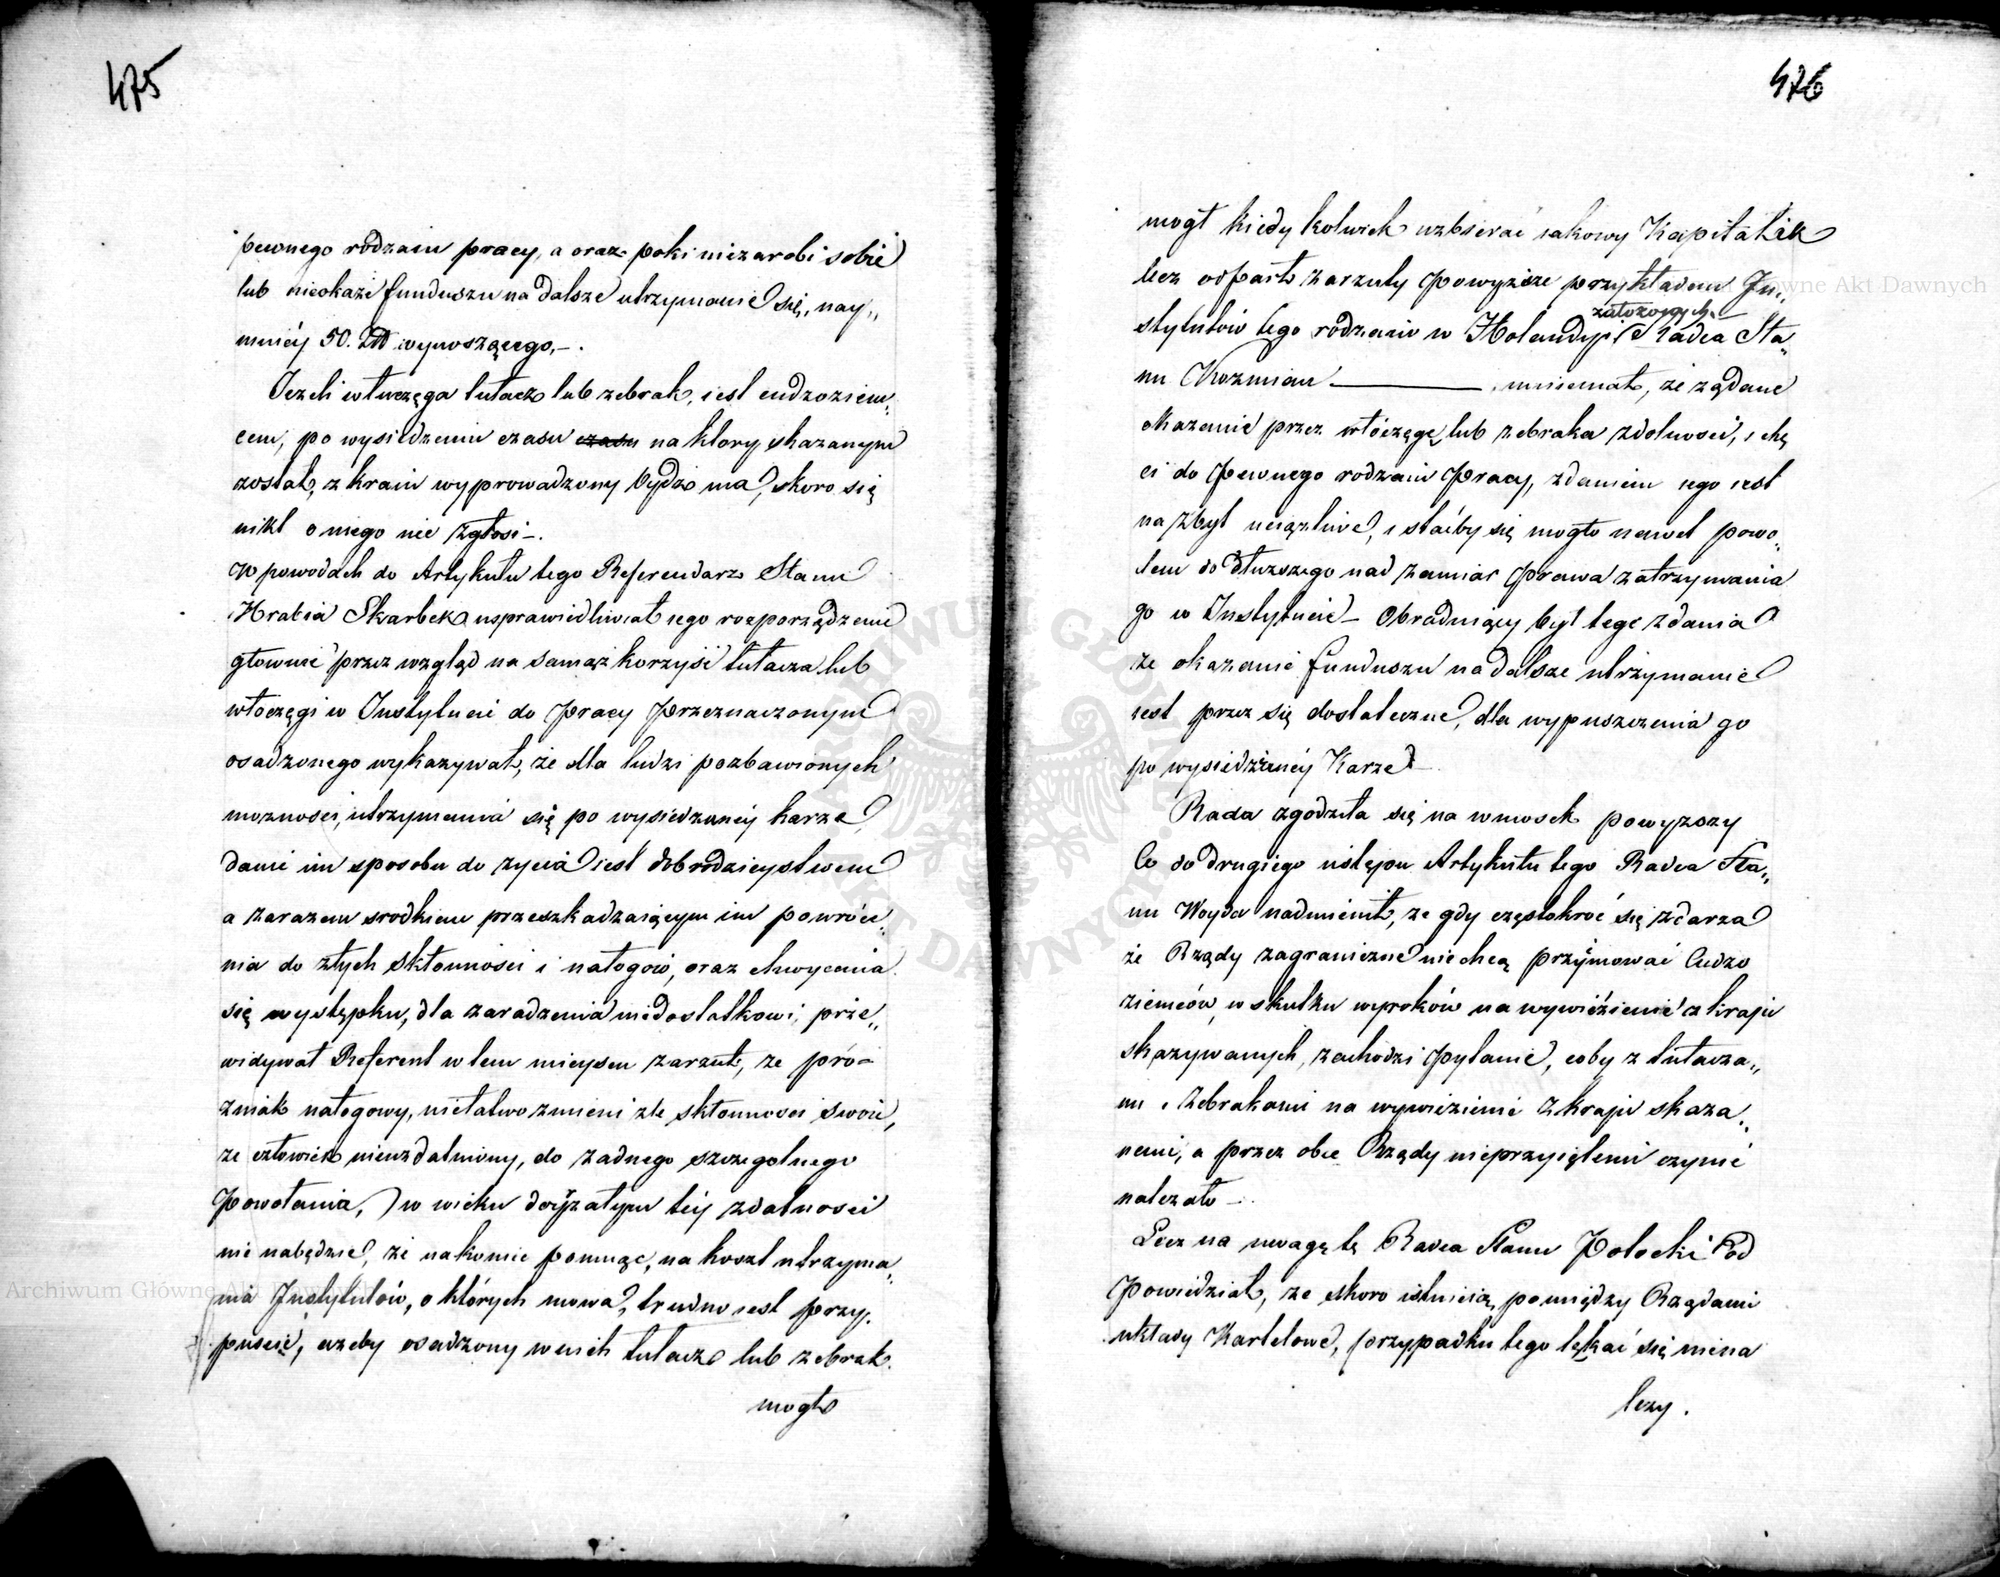 475
pewnego rodzaiu pracy, a oraz poki niezarobi sobie
lub nieokaże funduszu na dalsze utrzymanie się, nay„
mniéy 50. Złł wynoszącego.—.
Jeżeli włuczęga tułacz lub żebrak, iest cudzoziem„
cem, po wysiedzeniu czasu czasu na ktory skazanym
został, z kraiu wyprowadzony bydź ma, skoro się
nikt o niego nie zgłosi—.
W powodach do Artykułu tego Referendarz Stanu
Hrabia Skarbek usprawiedliwiał iego rozporządzenie
głownie przez wzgląd na samąż korzyść tułacza lub
włoczęgi w Instytucie do Pracy Przeznaczonym
osadzonego wykazywał, że dla ludzi pozbawionych
moznosci, utrzymania się po wysiedzianéy karze,
danie im sposobu do zycia iest dobrodzieystwem
a zarazem srodkiem przeszkadzaiącym im powróce„
nia do złych skłonności i nałogów, oraz chwycenia
się występku, dla zaradzenia niedostatkowi; prze„
widywał Referent w tem mieyscu zarzut, ze pró-
zniak nałogowy, niełatwo zmieni złe skłonnosci swoie,
ze człowiek nieuzdatniony, do zadnego szczegolnego
Powołania, w wieku doyrzałym téy zdatnosci
nie nabędzie, że nakoniec pomnąc, na koszt utrzyma„
nia Instytutów, o których mowa, trudno iest przy„
puscić, azeby osadzony w nich tułacz lub zebrak
mogł
476
mogł kiedykolwiek uzbierać iakowy Kapitalik
lecz odparł zarzuty Powyższe przykładem In„
założonych
stytutów tego rodzaiu w Holandyi Radca Sta„
nu Kozmian ——— mniemał, że żądane
okazanie przez włóczęgę lub zebraka zdolnosci, i chę
ci do Pewnego rodzaiu Pracy, zdaniem iego iest
nazbyt uciążliwe, i staćby się mogło nawet powo„
dem do dłuzszego nad zamiar Prawa zatrzymania
go w Instytucie— Obraduiący był tego zdania
że okazanie funduszu na dalsze utrzymanie
iest przez się dostateczne, dla wypuszczenia go
po wysiedzianéy Karze—
Rada zgodziła się na wniosek powyzszy
Co do drugiego ustępu Artykułu tego Radca Sta„
nu Woyda nadmienił, ze gdy częstokroć się zdarza
że Rządy zagraniczne niechcą przyimować Cudzo
ziemców, w skutku wyroków na wywiezienie z kraju
skazywanych, zachodzi Pytanie, coby z tułacza„
mi i Zebrakami na wywiezienie z kraju skaza„
nemi, a przez obce Rządy nieprzyiętemi czynić
nalezało—.
Lecz na uwagę tę Radca Stanu Potocki Od
Powiedział, ze skoro istnieią pomiędzy Rządami
układy Kartelowe, przypadku tego lękać się niena
lezy.